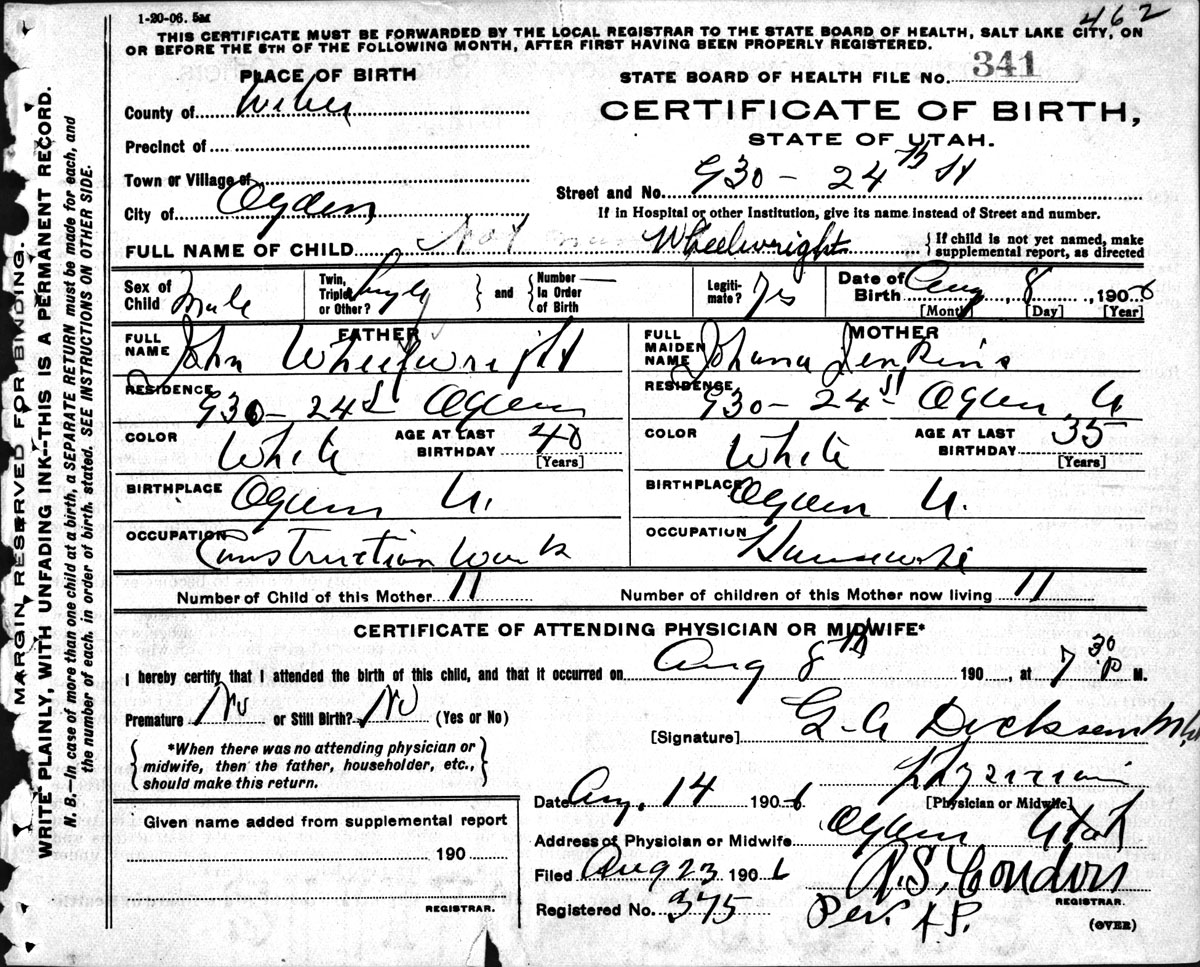 1-20-06. 5M
462
THIS CERTIFICATE MUST BE FORWARDED BY THE LOCAL REGISTRAR TO THE STATE BOARD OF HEALTH, SALT LAKE CITY, ON
OR BEFORE THE 5TH OF THE FOLLOWING MONTH, AFTER FIRST HAVING BEEN PROPERLY REGISTERED.
PLACE OF BIRTH
STATE BOARD OF HEALTH FILE NO. 341
County of Weber
CERTIFICATE OF BIRTH,
STATE OF UTAH.
Precinct of
Town or Village of
Street and No. 930 - 24th St
City of Ogden
If in Hospital or other Institution, give its name instead of Street and number.
FULL NAME OF CHILD Not Wheelwright {If child is not yet named, make supplemental report, as directed
Sex of Child Male
Twin, Triplet or Other? and Number In Order of Birth
Legitimate? Yes
Date of Birth Aug 8, 1906
[Month] [Day] [Year]
FATHER
FULL NAME John Wheelwright
RESIDENCE 930 - 24 St Ogden
COLOR White AGE AT LAST BIRTHDAY 40 [Years]
BIRTHPLACE Ogden U.
OCCUPATION Construction Work
MOTHER
FULL MAIDEN NAME Johana Jenkins
RESIDENCE 930 - 24 St Ogden U
COLOR White AGE AT LAST BIRTHDAY 35 [Years]
BIRTHPLACE Ogden U.
OCCUPATION Housewife
Number of Child of this Mother 11 Number of children of this Mother now living 11
CERTIFICATE OF ATTENDING PHYSICIAN OR MIDWIFE*
I hereby certify that I attended the birth of this child, and that it occurred on Aug 8th 190 , at 7 30 P M.
Premature No or Still Birth? No (Yes or No)
[Signature] G. A Dickson M.D.
*When there was no attending physician or
midwife, then the father, householder, etc.,
should make this return.
Physician
[Physician or Midwife]
Date Aug, 14 1906
Given name added from supplemental report
190
REGISTRAR.
Address of Physician or Midwife Ogden Utah
Filed Aug 23 1906 A. S. Condon
REGISTRAR.
Registered No. 375 Per.
(OVER)
MARGIN RESERVED FOR BINDING.
WRITE PLAINLY, WITH UNFADING INK--THIS IS A PERMANENT RECORD.
N. B.—In case of more than one child at a birth, a SEPARATE RETURN must be made for each, and
the number of each, in order of birth, stated. SEE INSTRUCTIONS ON OTHER SIDE.